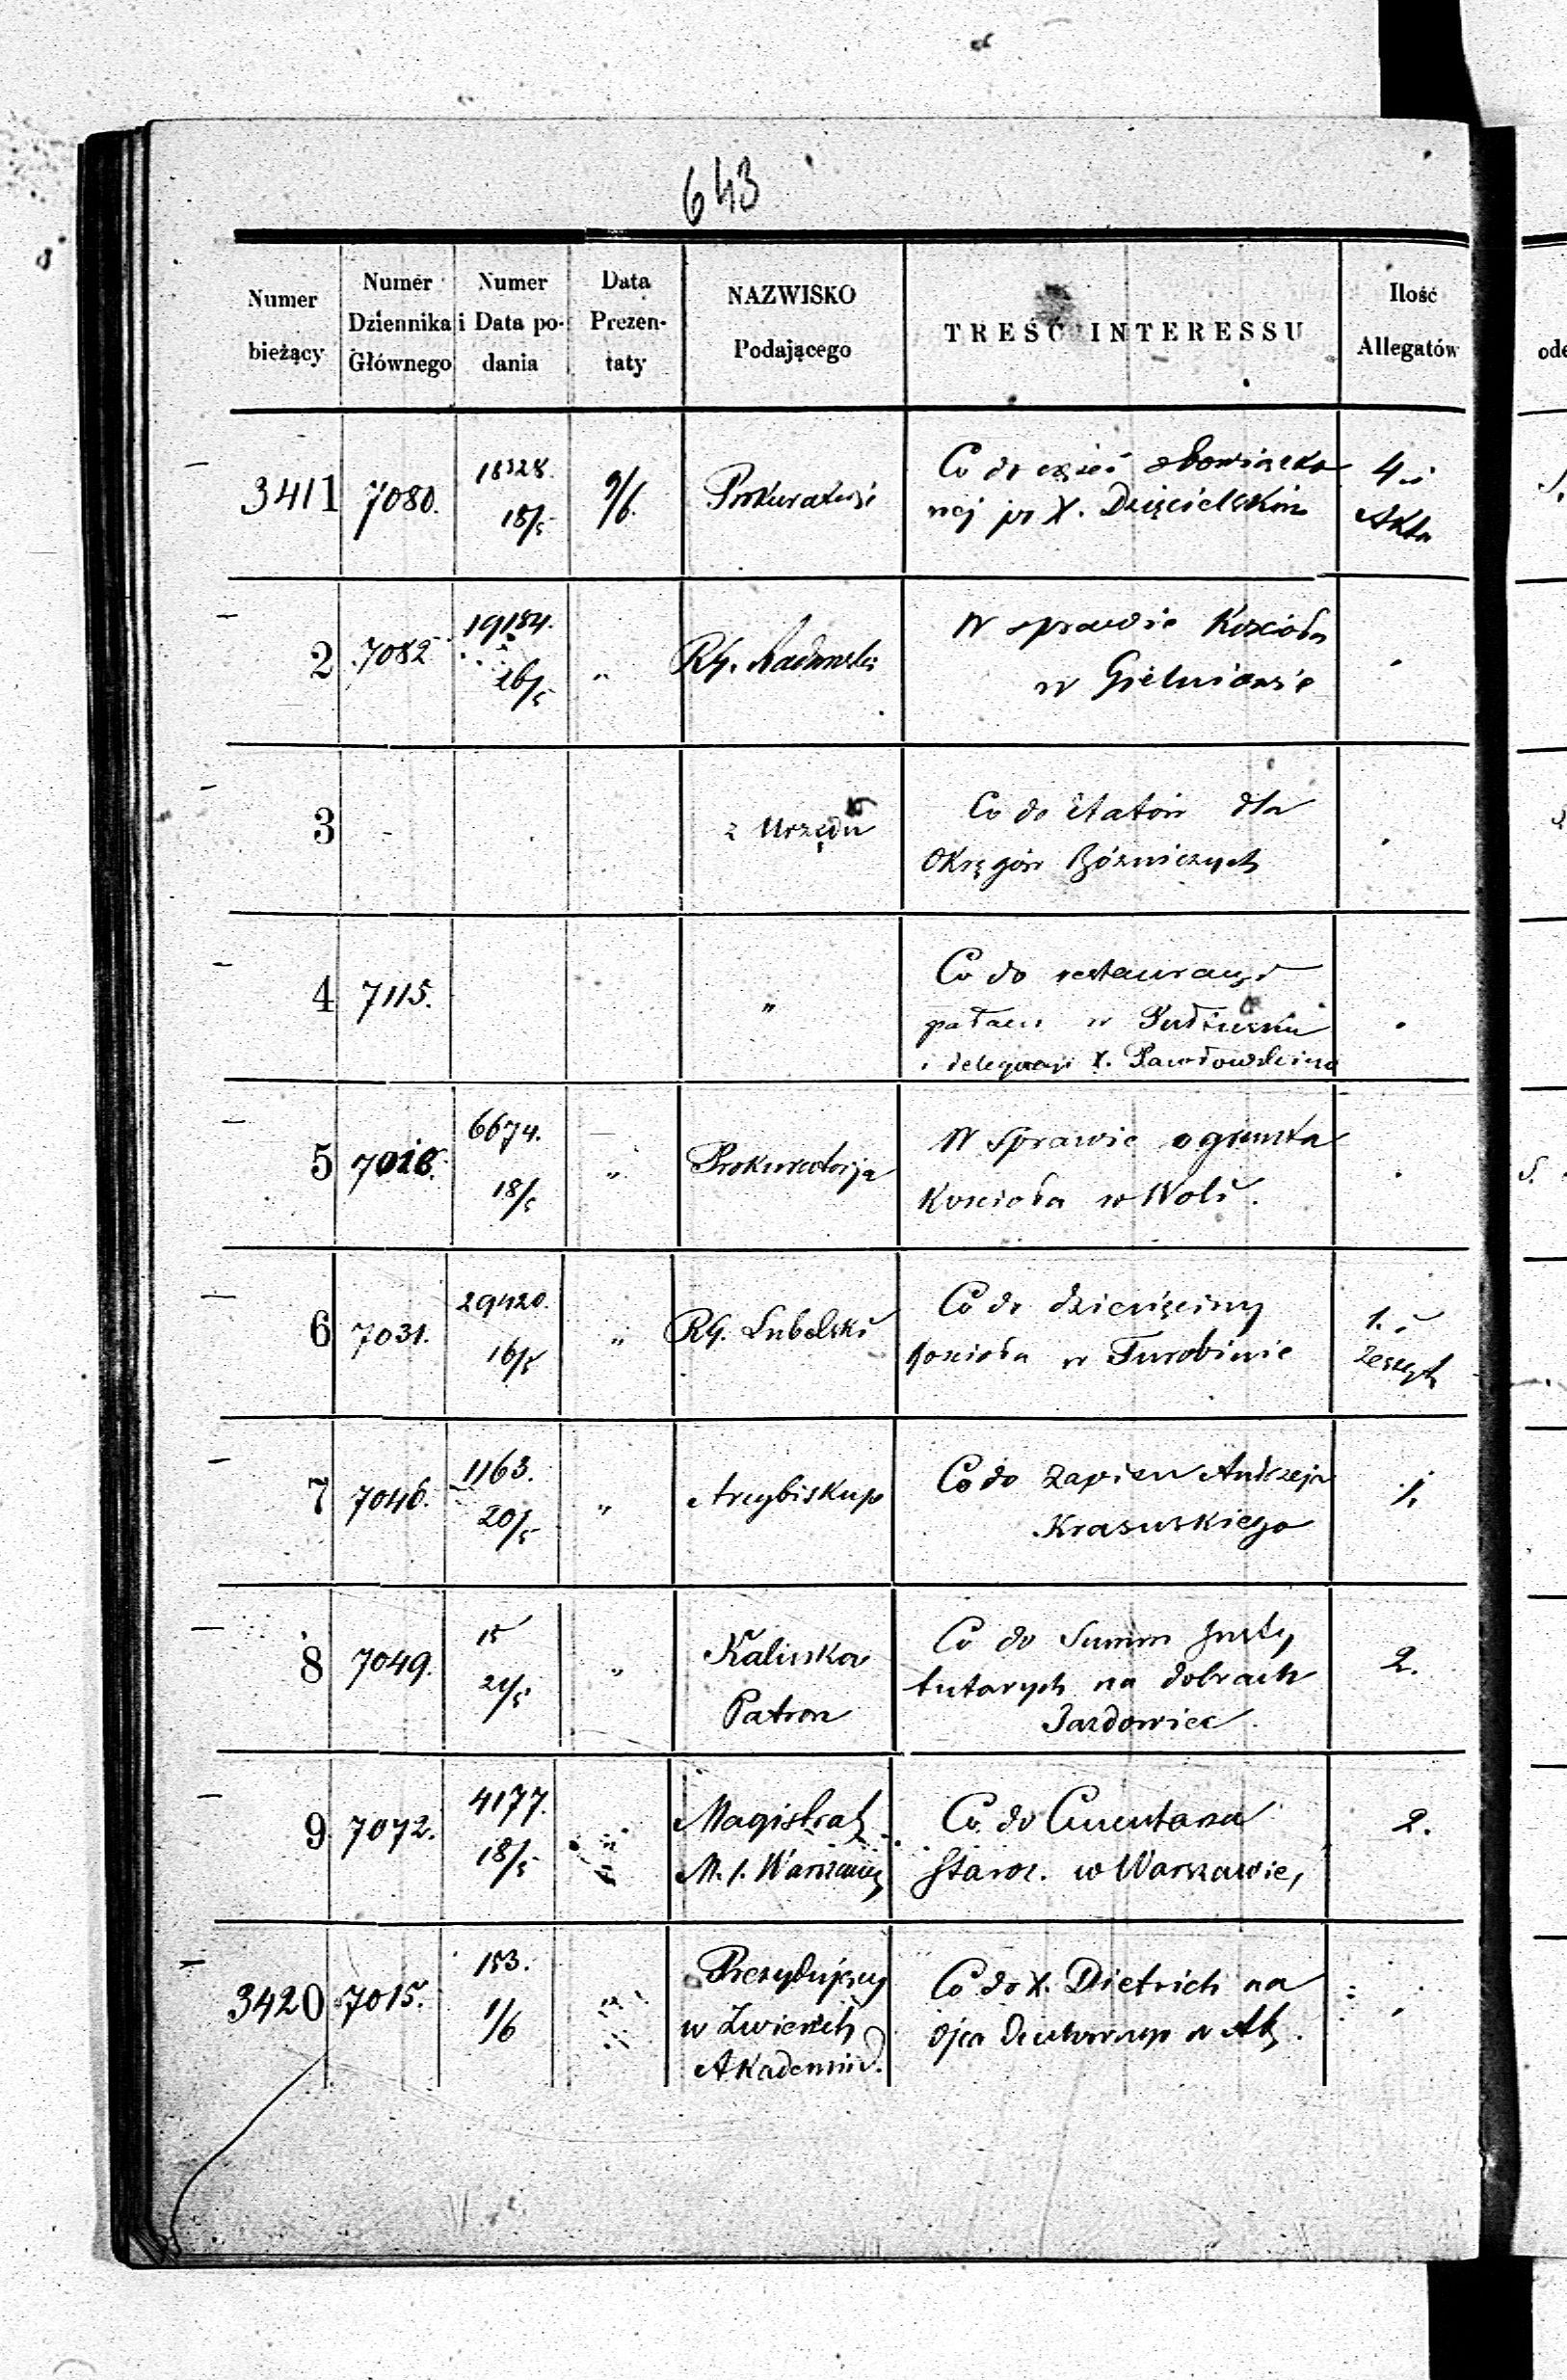 643
Numer bieżący
Numer Dziennika Głównego
Numer i Data podania
Data Prezentaty
NAZWISKO Podającego
TREŚĆ INTERESSU
Ilość Allegatów
3411 7080. 18328. 18/5 9/6. Prokuratorji
Co do części obowiązko
nej po X. Dzięcielskim
4. i
Akta
2 7082 19184. 26/5 „ RG. Radomski
W sprawie Kościoła
w Gielniowie
3 - z Urzędu
Co do Etatów dla
Okręgów Bóżniczych
4 7115. „
Co do restauracji
pałacu w Pułtusku
i delegacji X. Pawłowskiego
5 7018. 6674. 18/5 „ Prokuratorja
W Sprawie ogrunta
Kościoła w Woli.
6 7031. 29420. 16/5 „ RG. Lubelski
Co do dziesięciny
Kościoła w Turobinie
1. i
Zeszyt
7 7046. 1163. 20/5 „ Arcybiskup
Co do zapisu Andrzeja
Krasuskiego
1.
8 7049. 15 21/5 „ Kaliska
Patron
Co do Summ Insty
tutowych na dobrach
2.
9 7072. 4177. 18/5 „ Magistrat
M. S. Warszawy
Co do Cmentarza
Staroz. w Warszawie,
2.
3420 7015. 153. 1/6 „ Prezydujący
w
Akademii D.
Co do X. Dietrich na
Ojca Duchownego w Ak.